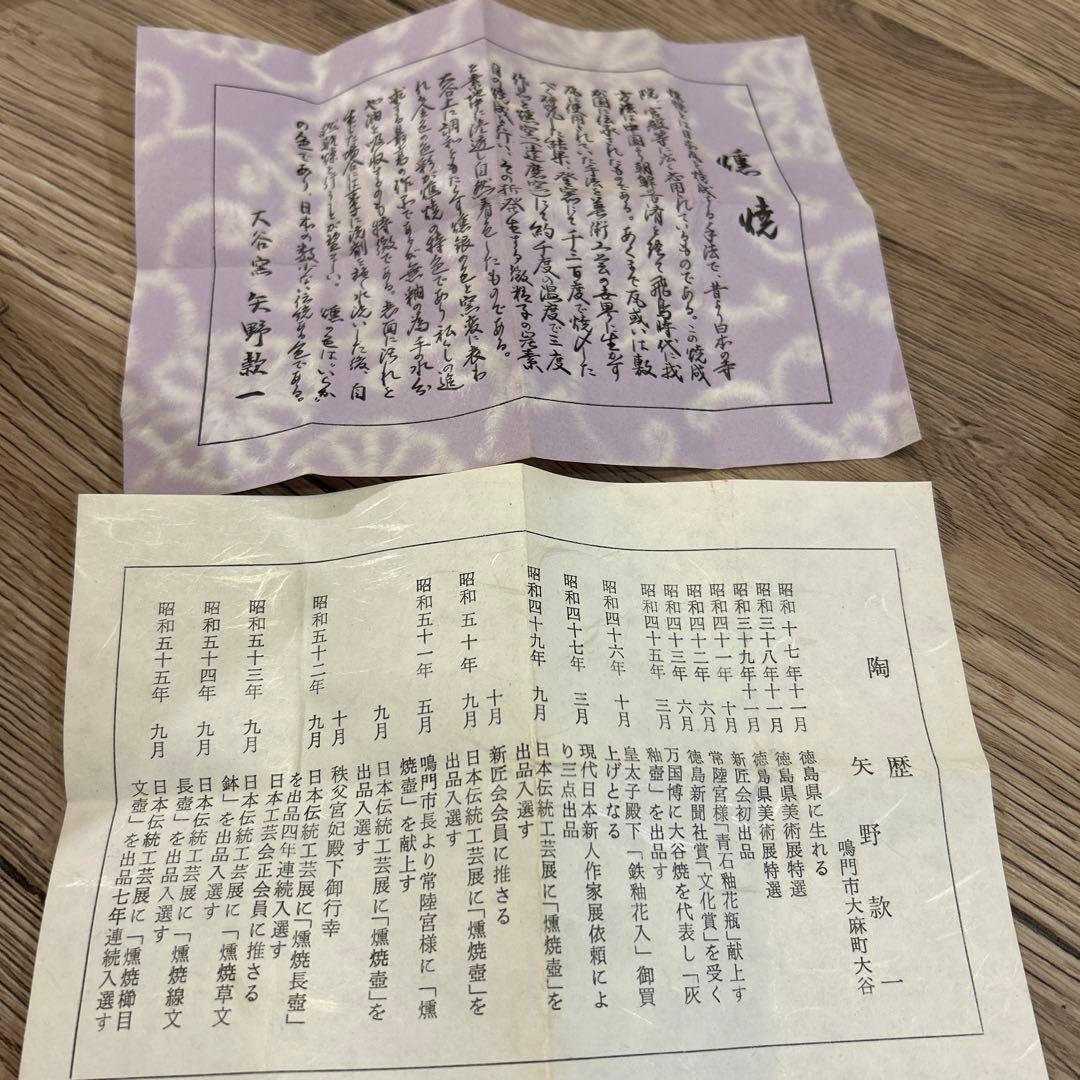 燻焼
燻焼とは日本瓦を焼成する手法で、昔より日本の寺
院、官殿等に広く応用されているものである。この焼成
方法は中国より朝鮮百済を経て飛鳥時代に我
が国に伝承されたものである。あくまで瓦或いは敷
瓦に使用されていた手法を美術工芸の世界に生かす
べく研究した結果、登窯にて千三百度で焼〆した
作品を燻窯(達磨窯)にて約千度の温度で三度
目の焼成を行い、その折発生する微粒子の炭素
を素地中に浸透し自然着色したものである。
大谷土に調和をもたらす燻銀の色と窯変に表わ
れる金色の色彩が燻焼の特色であり私しの進
求する最高の作品でありますが無釉の為、手の水分
や油を吸収するのも特徴である。表面に汚れを
生じた場合には早季に洗剤を経て水洗いした後、自
然乾燥を行うことが望ましい。燻の色は、いらか
の色であり日本の数少ない伝統ある色である。
大谷窯 矢野款一
陶歴
矢野款一
鳴門市大麻町大谷
昭和十七年十一月 徳島県に生れる
昭和三十八年十一月 徳島県美術展特選
昭和三十九年十一月 徳島県美術展特選
昭和四十一年十月 新匠会初出品
昭和四十二年六月 常陸宮様「青石釉花瓶」献上す
昭和四十三年六月 徳島新聞社賞「文化賞」を受く
昭和四十五年三月 万国博に大谷焼を代表し「灰
釉壺」を出品す
昭和四十六年十月 皇太子殿下「鉄釉花入」御買
上げとなる
昭和四十七年三月 現代日本新人作家展依頼によ
り三点出品
昭和四十九年九月 日本伝統工芸展に「燻焼壺」を
出品入選す
十月 新匠会会員に推さる
昭和五十年九月 日本伝統工芸展に「燻焼壺」を
出品入選す
昭和五十一年五月 鳴門市長より常陸宮様に「燻
焼壺」を献上す
九月 日本伝統工芸展に「燻焼壺」を
出品入選す
十月 秩父宮妃殿下御行幸
昭和五十二年九月 日本伝統工芸展に「燻焼長壺」
を出品四年連続入選す
日本工芸会正会員に推さる
昭和五十三年九月 日本伝統工芸展に「燻焼草文
鉢」を出品入選す
昭和五十四年九月 日本伝統工芸展に「燻焼線文
長壺」を出品入選す
昭和五十五年九月 日本伝統工芸展に「燻焼櫛目
文壺」を出品七年連続入選す